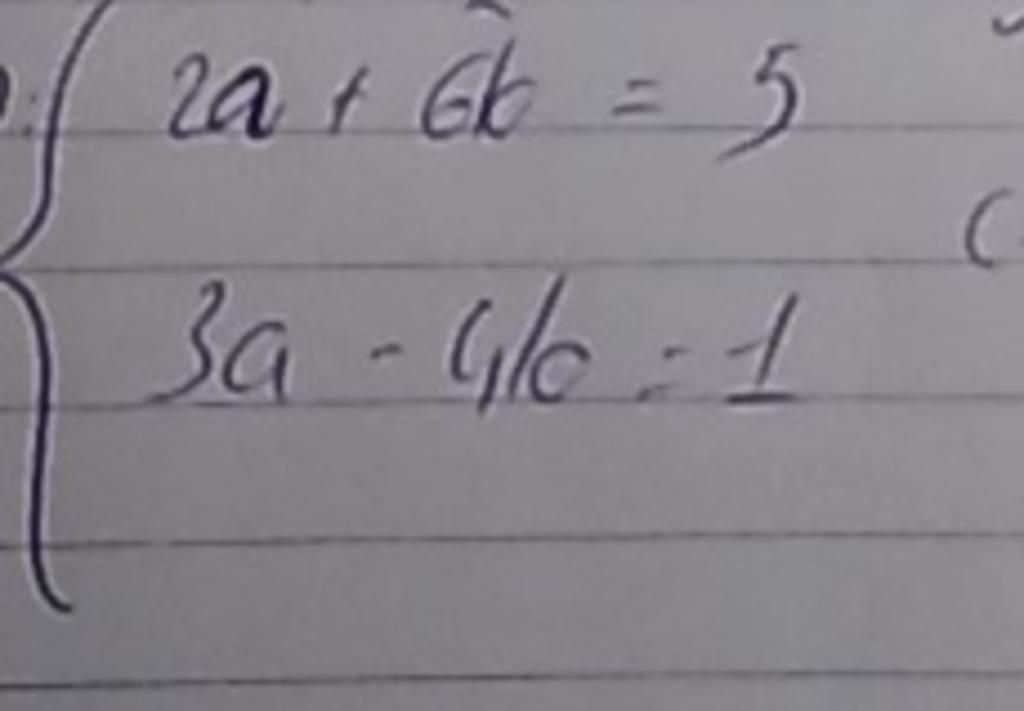 2a + 6b = 5
3a - 4b = 1